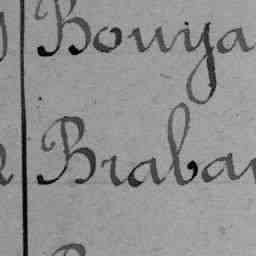 Bouya
Braban